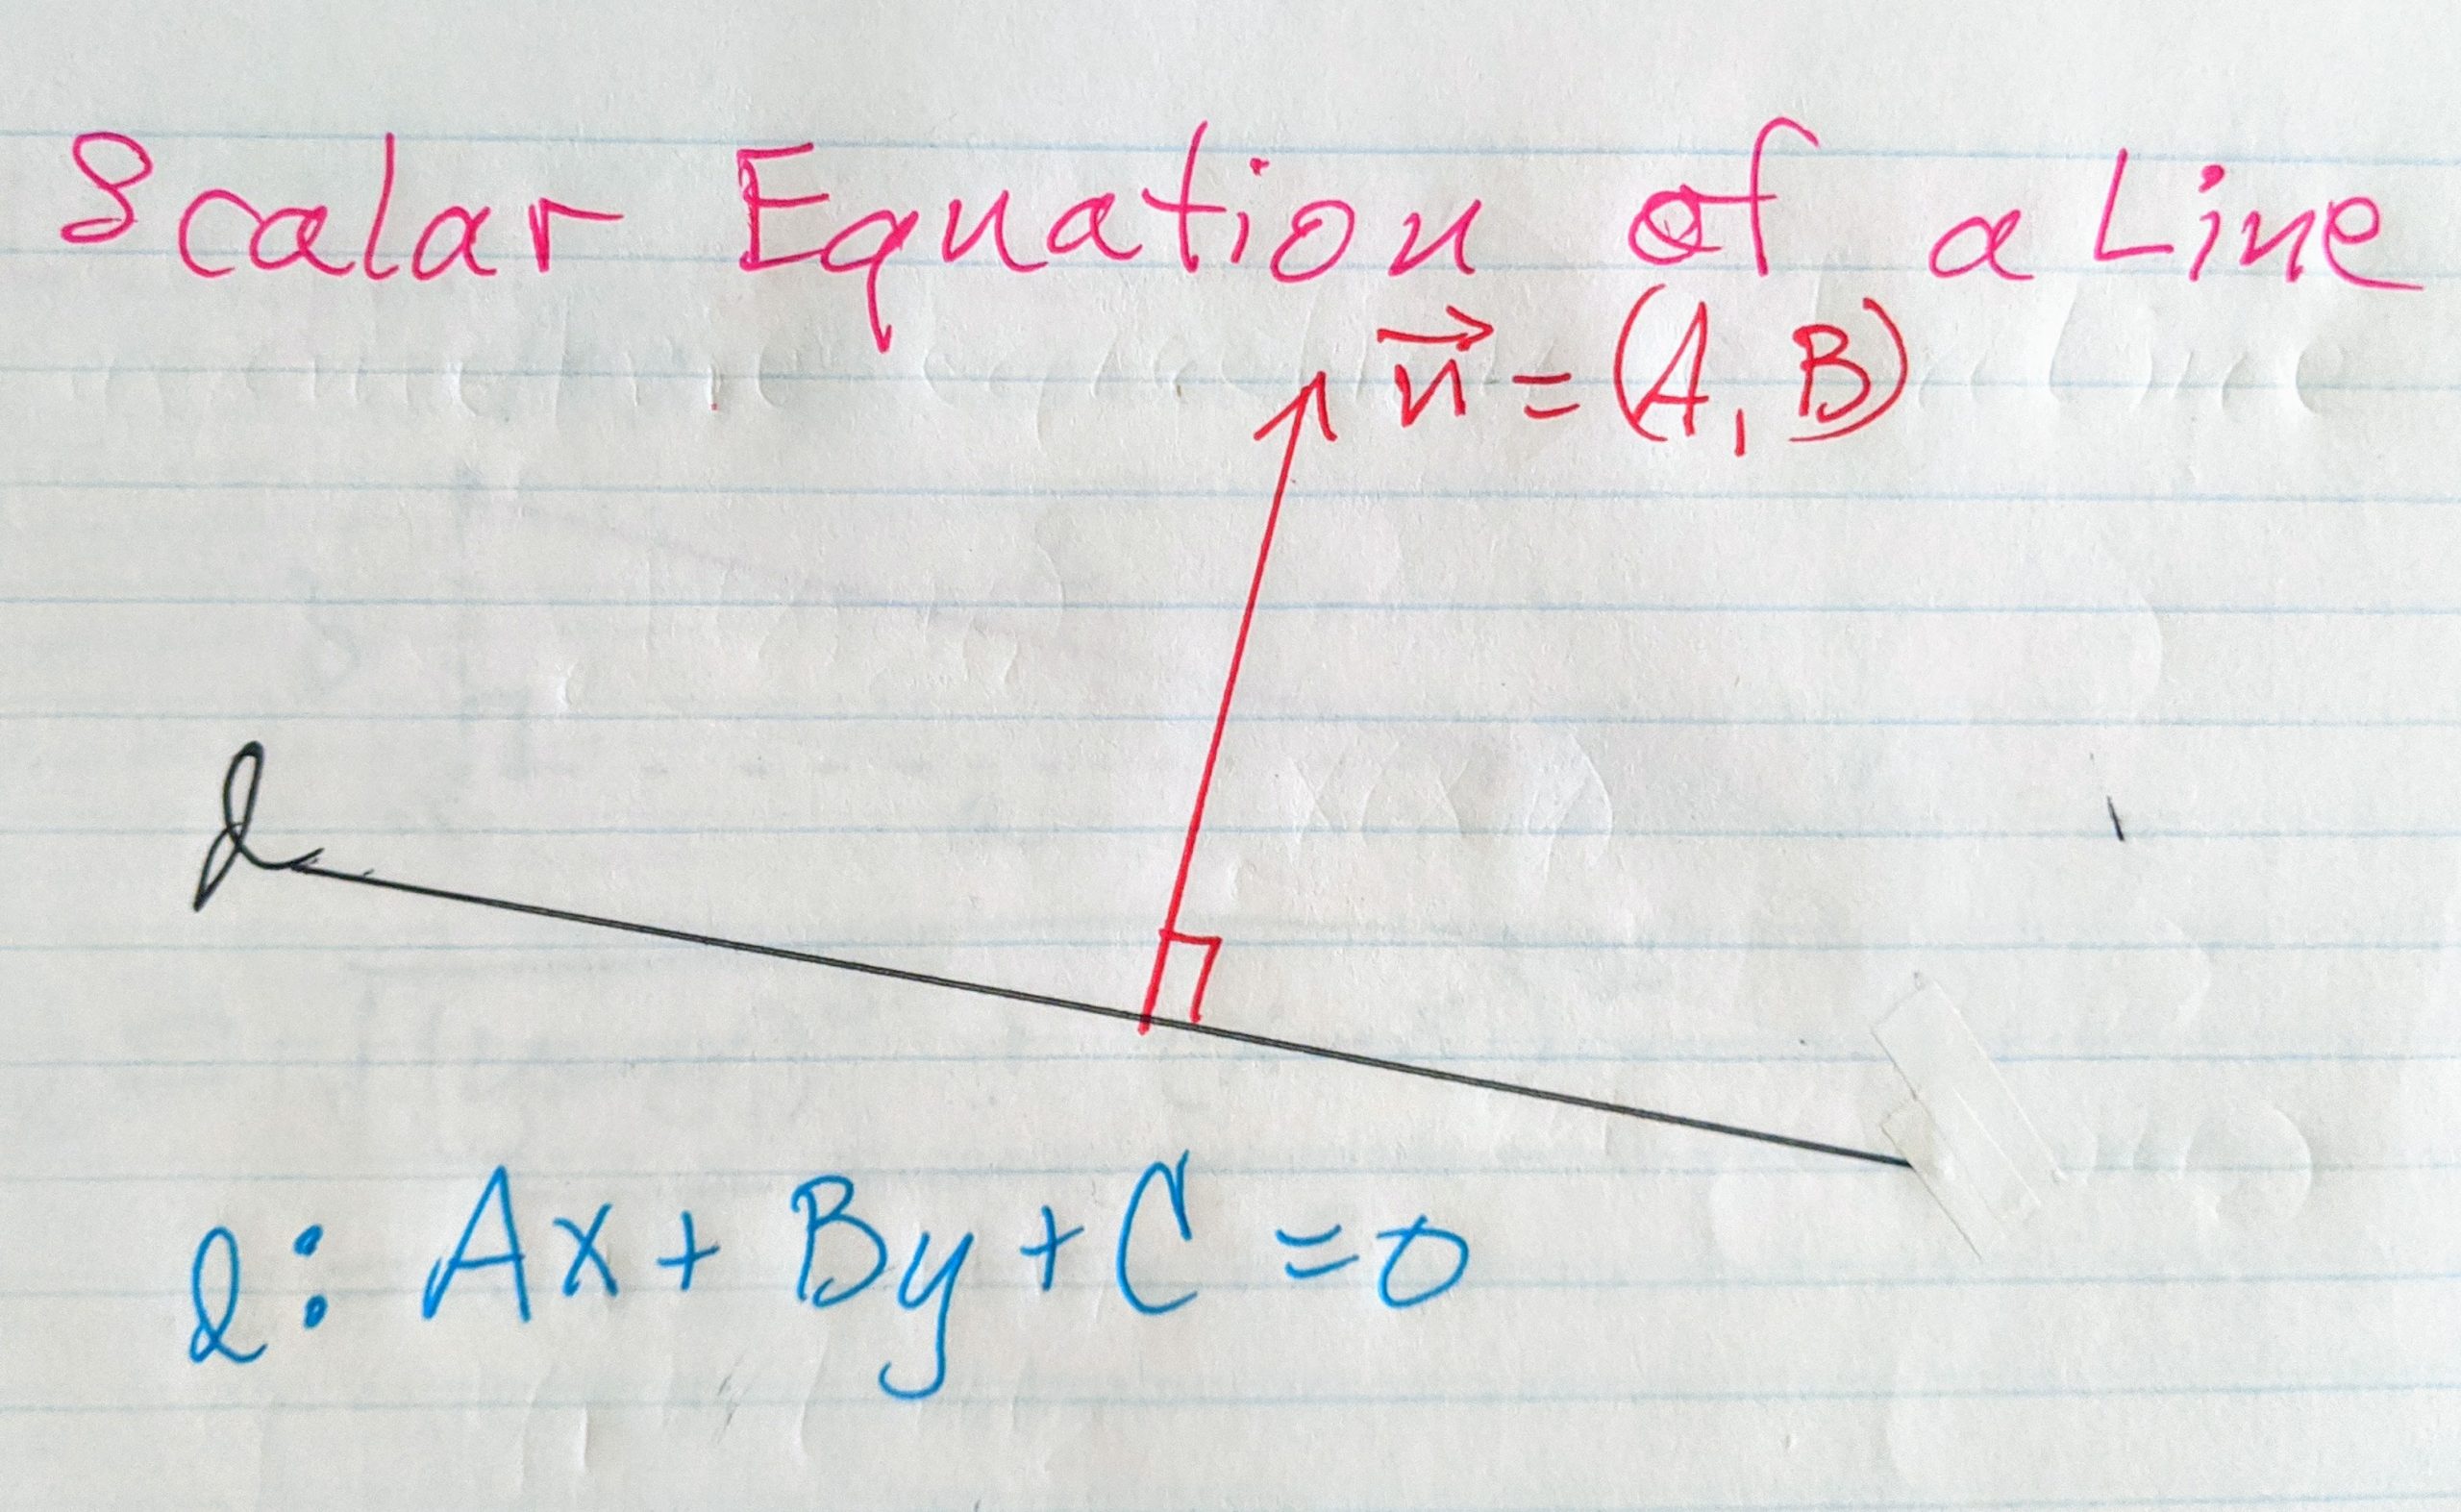 Scalar Equation of a Line
n⃗ = (A, B)
l
l: Ax + By + C = 0